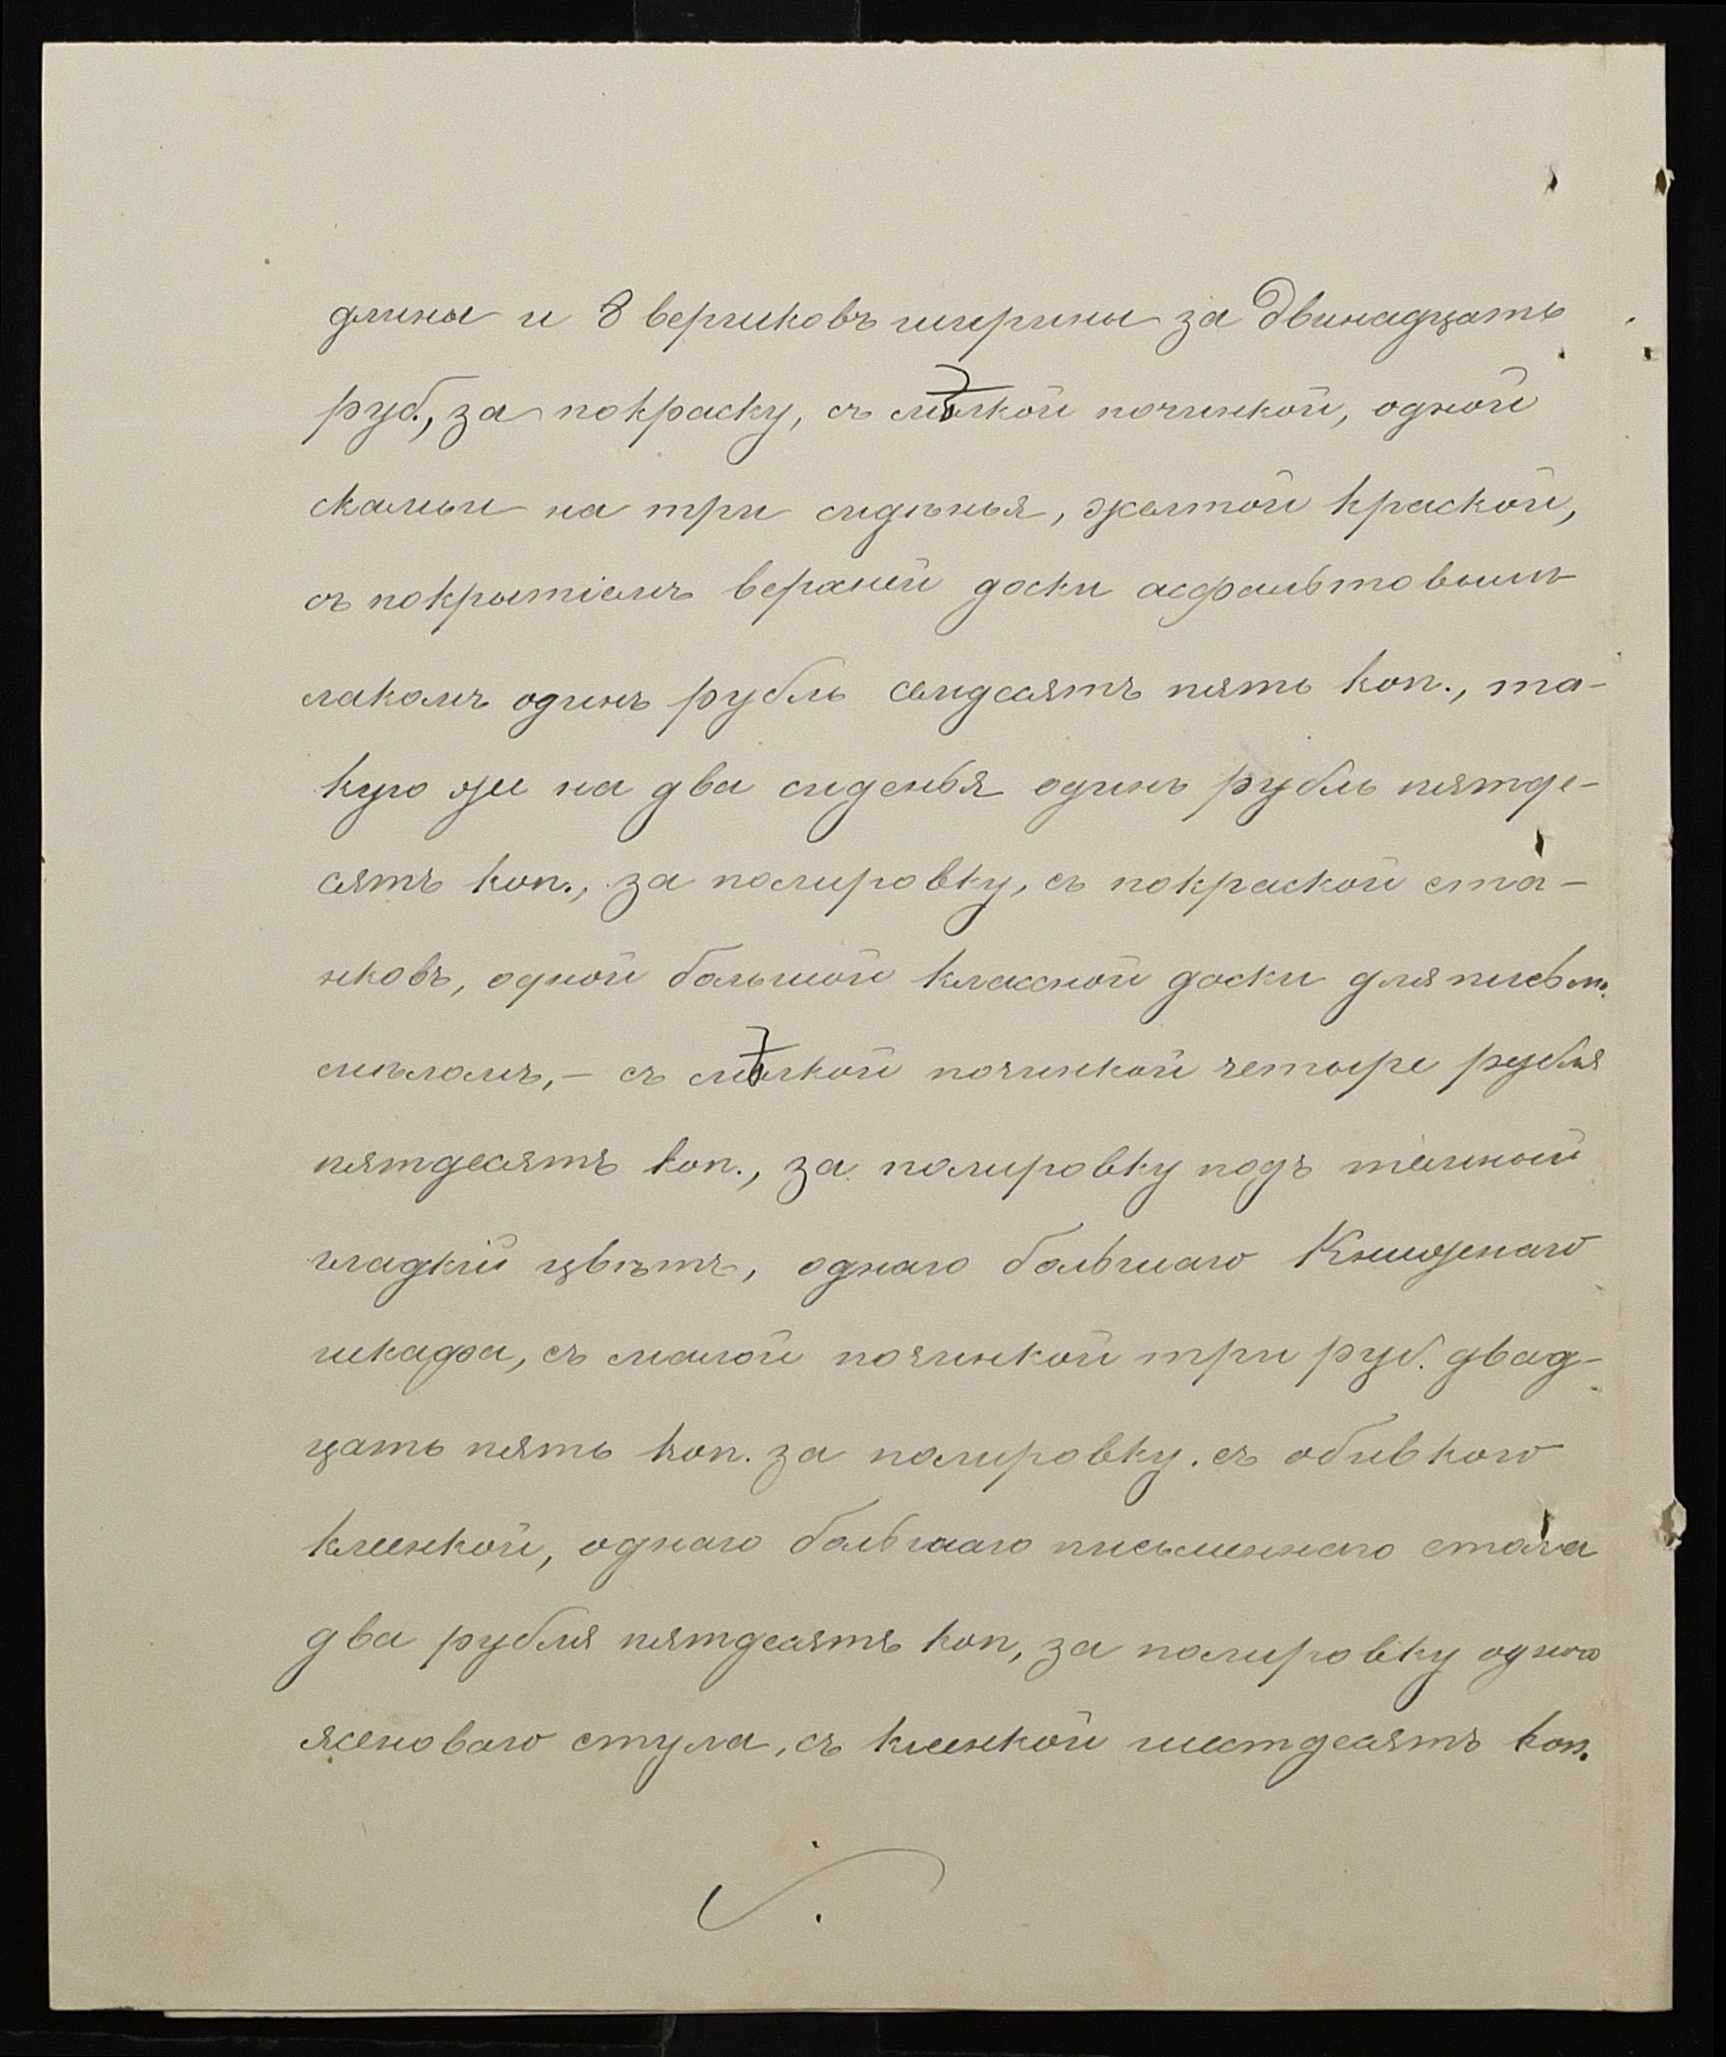 длины и 8 вершковъ ширины за двинадцать
руб., за покраску, съ мѣлкой починкой, одной
скамьи на три сидѣнья, желтой краской,
съ покрытіемъ верхней доски асфальтовымъ
лакомъ одинъ рубль семдесятъ пять коп., та-
кую же на два сиденья одинъ рубль пятде-
сятъ коп., за полировку, съ покраской ста-
нковъ, одной большой классной доски для письм.
мѣломъ, - съ мѣлкой починкой четыре рубля
пятдесятъ коп., за полировку подъ темный
гладкій цвѣтъ, однаго большаго Книжнаго
шкафа, съ малой починкой три руб. двад-
цать пять коп. за полировку. съ обивкою
клеенкой, однаго большаго письменнаго стола
два рубля пятдесятъ коп, за полировку одного
ясеноваго стула, съ клеенкой шестдесятъ коп.